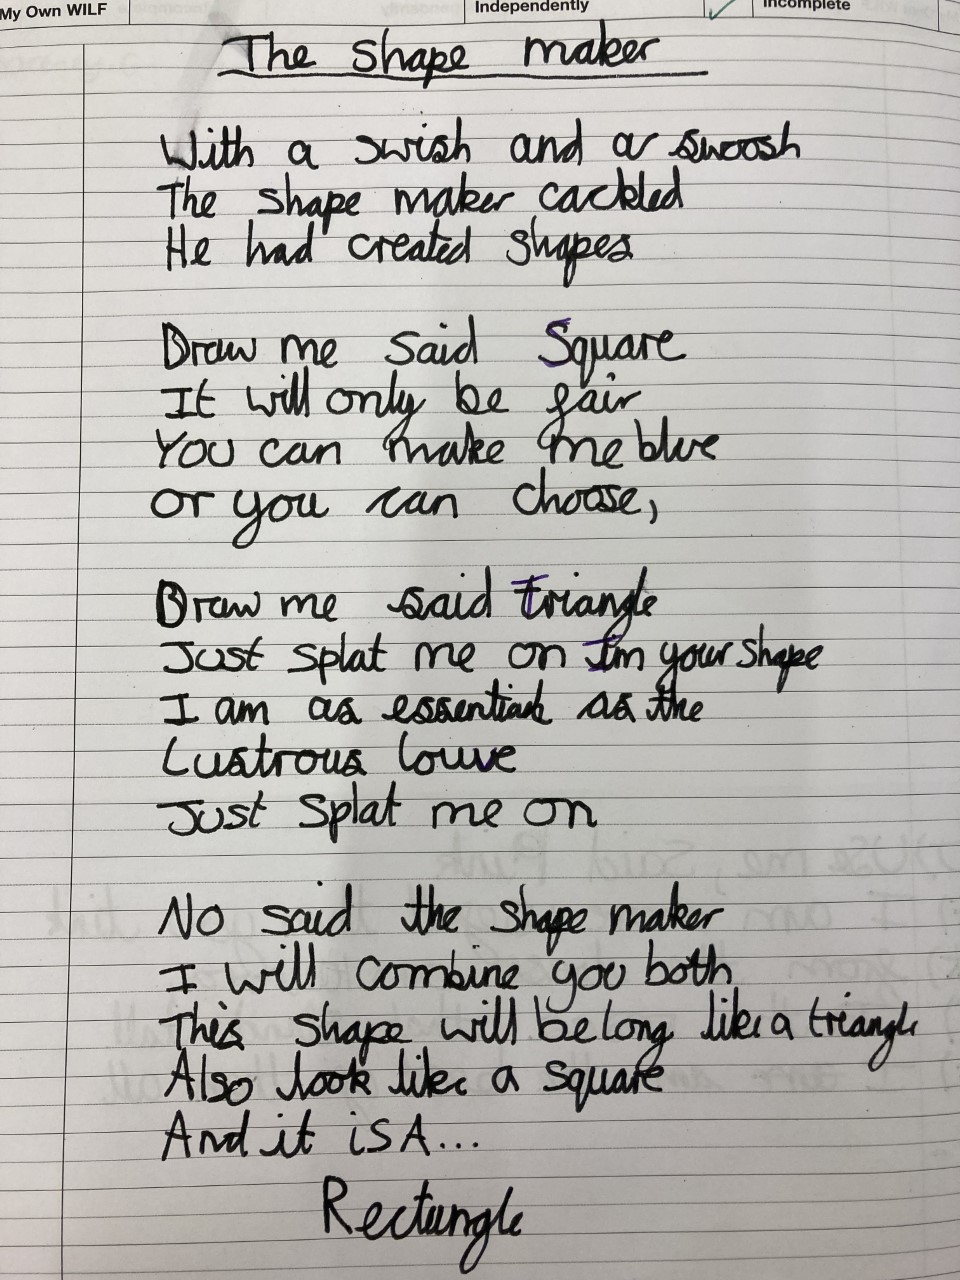 My Own WILF
Independently
Incomplete
The Shape maker
With a swish and a swoosh
The shape maker cackled
He had created shapes
Draw me said Square
It will only be fair
You can make me blue
or you can choose,
Draw me said Triangle
Just splat me on Im your shape
I am as essential as the
Lustrous louve
Just Splat me on
No said the shape maker
I will combine you both
This shape will be long like a triangle
Also look like a square
And it is A...
Rectungle